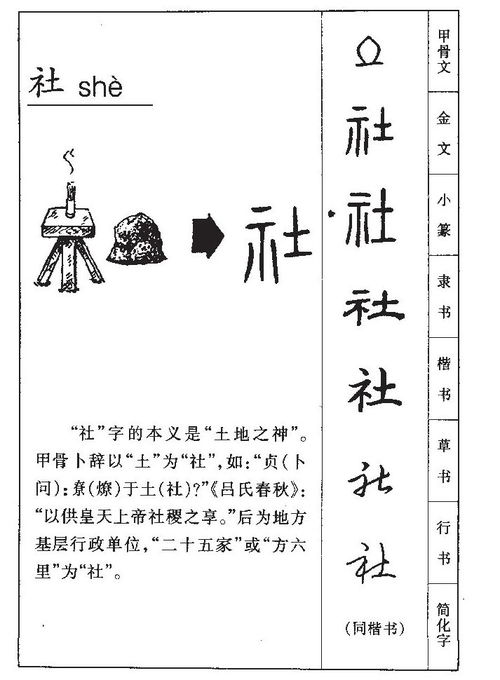 社 shè
社
"社"字的本义是"土地之神"。
甲骨卜辞以"土"为"社",如:"贞(卜
问):尞(燎)于土(社)?"《吕氏春秋》:
"以供皇天上帝社稷之享。"后为地方
基层行政单位,"二十五家"或"方六
里"为"社"。
社
社
社
社
社
社
(同楷书)
甲骨文
金文
小篆
隶书
楷书
草书
行书
简化字